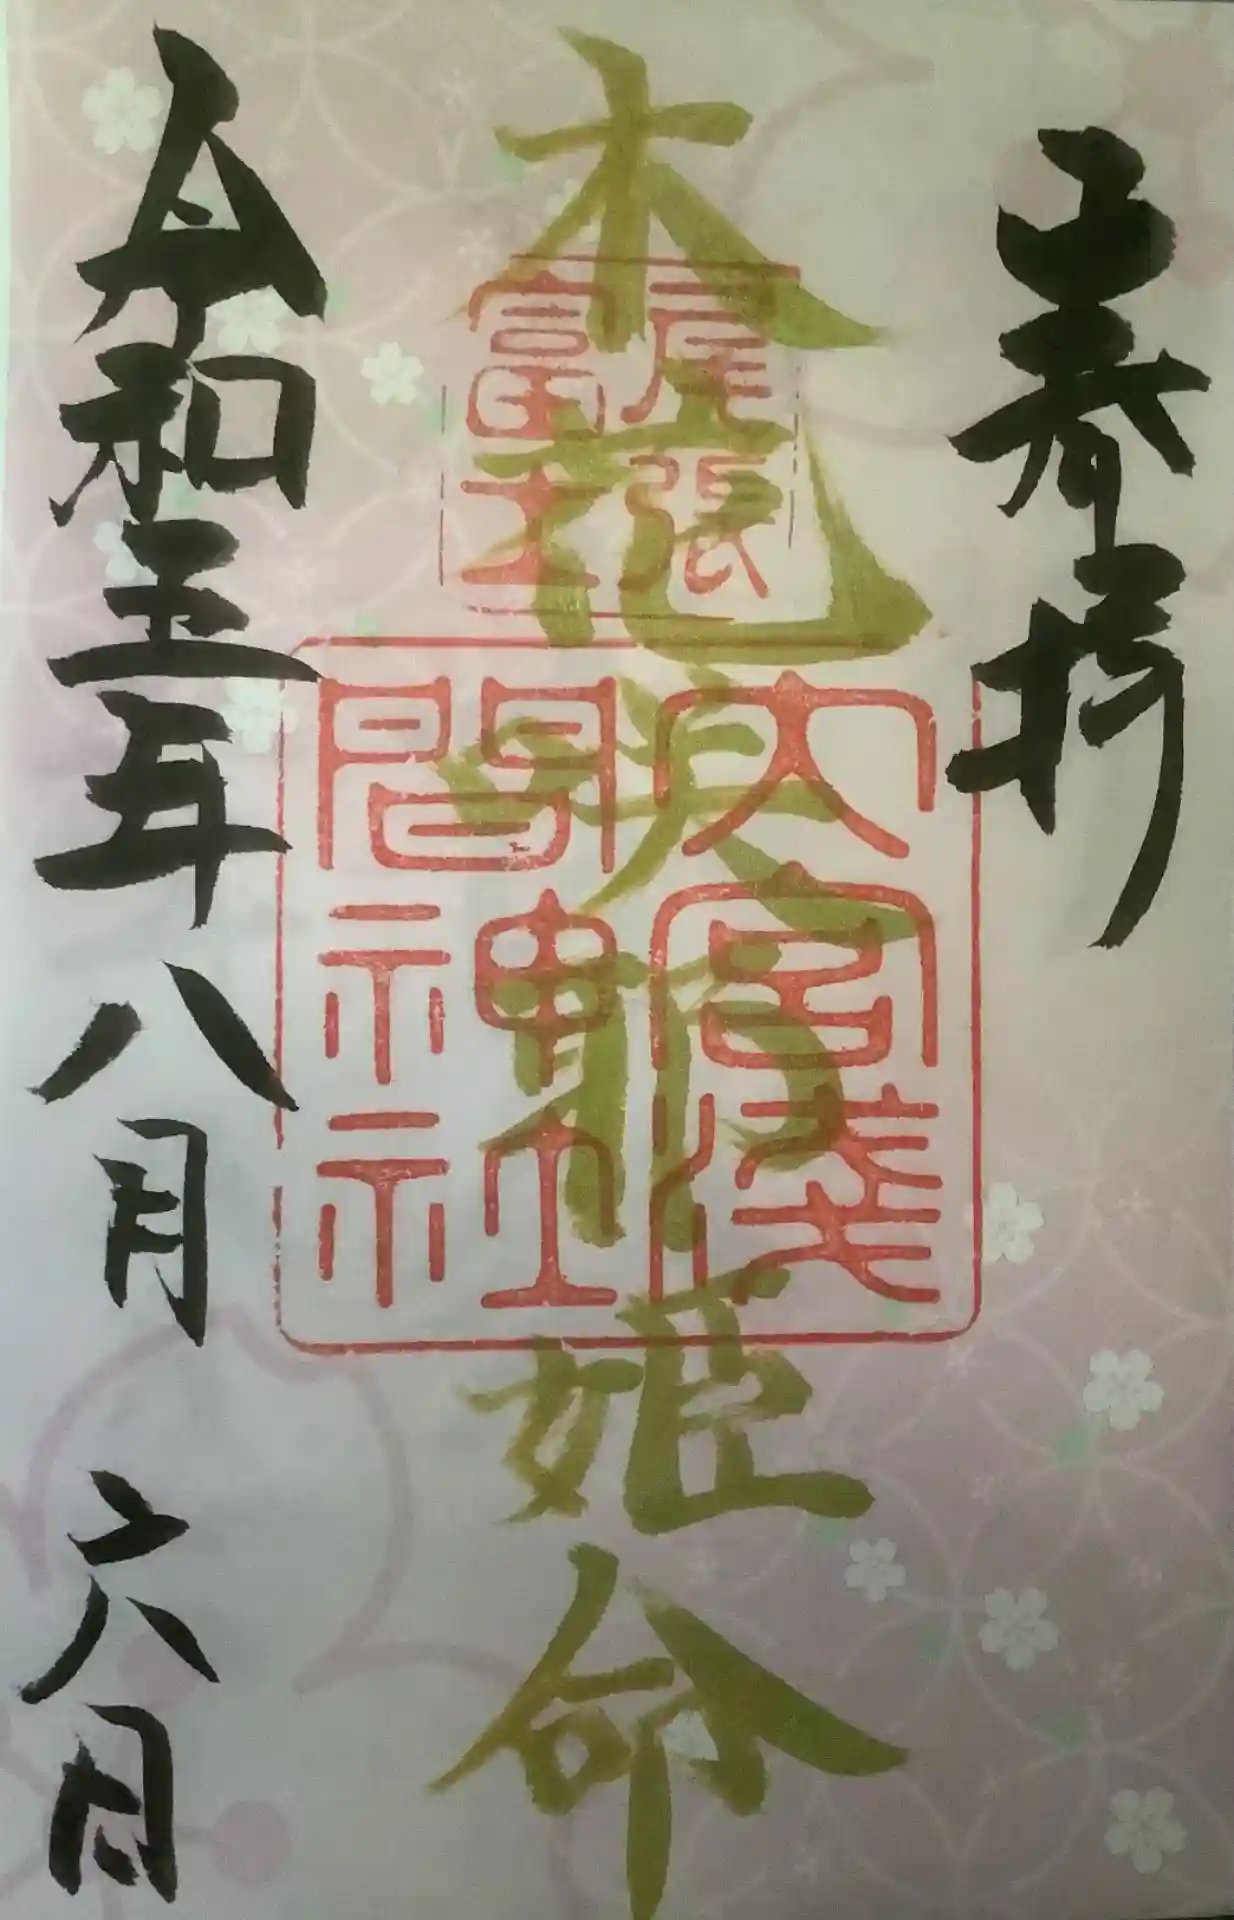 奉拝
木花咲耶姫命
尾張
富士
大宮浅
間神社
令和五年八月六日